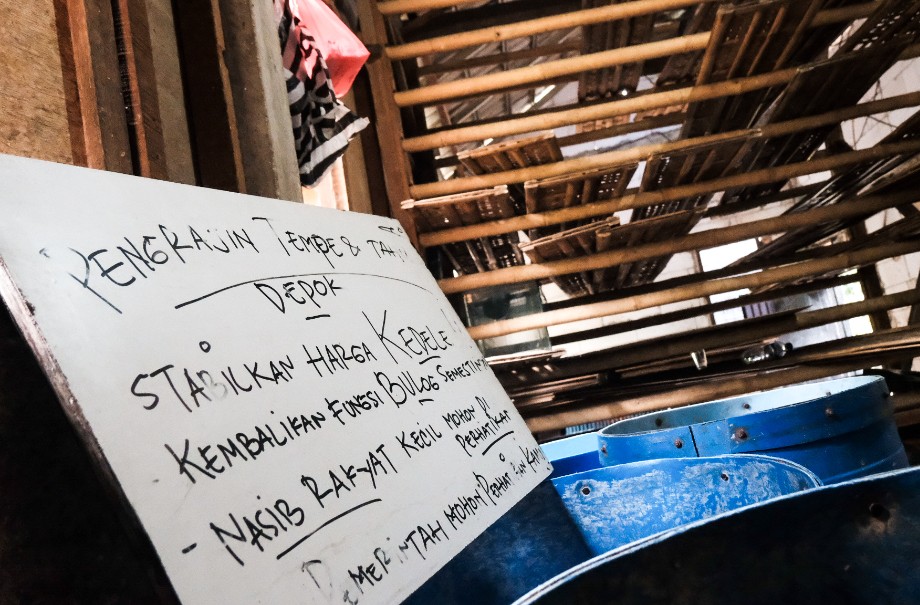 PENGRAJIN TEMPE & TAHU
DEPOK
STABILKAN HARGA KEDELE!
KEMBALIKAN FUNGSI BULOG SEMESTINYA
- NASIB RAKYAT KECIL MOHON DI
PERHATIKAN
PEMERINTAH MOHON PERHATIKAN KAMI